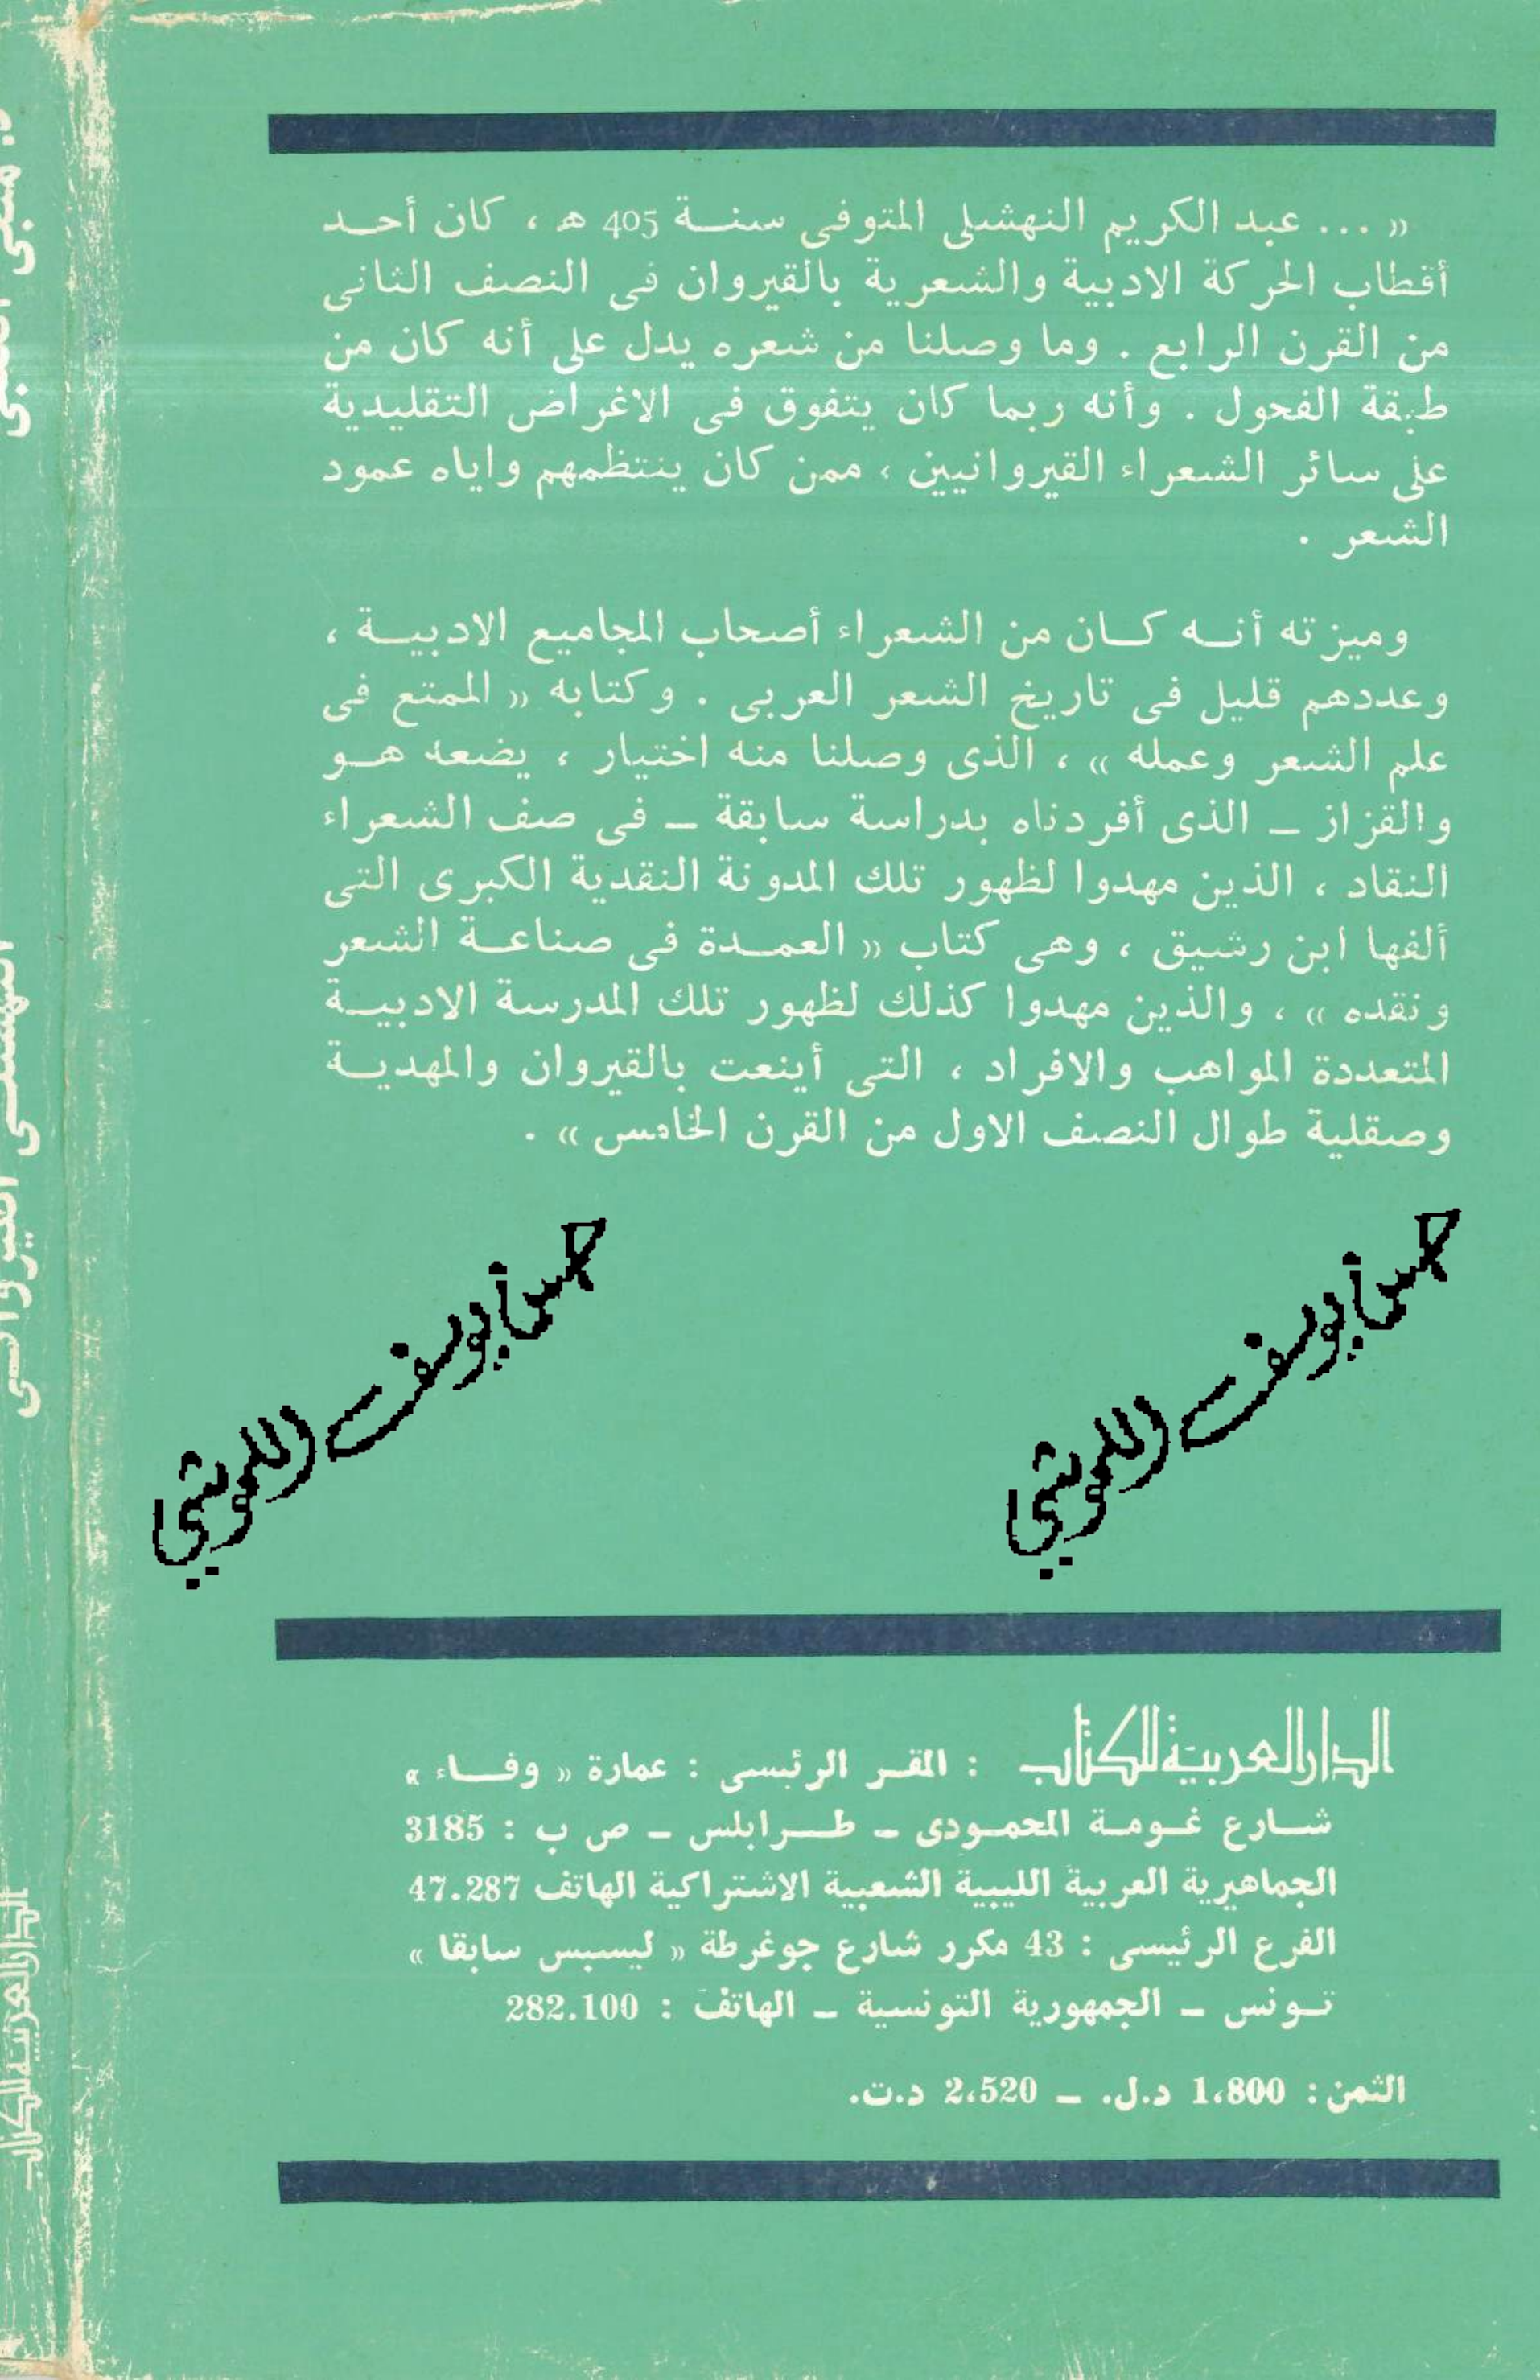 « ... عبد الكريم النهشلى المتوفى سنـــة 405 ه ، كان أحــد
أقطاب الحركة الادبية والشعرية بالقيروان فى النصف الثانى
من القرن الرابع . وما وصلنا من شعره يدل على أنه كان من
طبقة الفحول . وأنه ربما كان يتفوق فى الاغراض التقليدية
على سائر الشعراء القيروانيين ، ممن كان ينتظمهم واياه عمود
الشعر .
وميزته أنــه كــان من الشعراء أصحاب المجاميع الادبيــة ،
وعددهم قليل فى تاريخ الشعر العربى . وكتابه « الممتع فى
علم الشعر وعمله » ، الذى وصلنا منه اختيار ، يضعه هــو
والقزاز – الذى أفردناه بدراسة سابقة – فى صف الشعراء
النقاد ، الذين مهدوا لظهور تلك المدونة النقدية الكبرى التى
ألفها ابن رشيق ، وهى كتاب « العمــدة فى صناعــة الشعر
ونقده » ، والذين مهدوا كذلك لظهور تلك المدرسة الادبيــة
المتعددة المواهب والافراد ، التى أينعت بالقيروان والمهديــة
وصقلية طوال النصف الاول من القرن الخامس » .
الدار العربية للكتاب : المقـر الرئيسى : عمارة « وفــاء »
شــارع غـومـة المحمـودى – طــرابلس – ص ب : 3185
الجماهيرية العربية الليبية الشعبية الاشتراكية الهاتف 47.287
الفرع الرئيسى : 43 مكرر شارع جوغرطة « ليسبس سابقا »
تـونس – الجمهورية التونسية – الهاتف : 282.100
الثمن : 1،800 د.ل. – 2،520 د.ت.
الدار العربية للكتاب